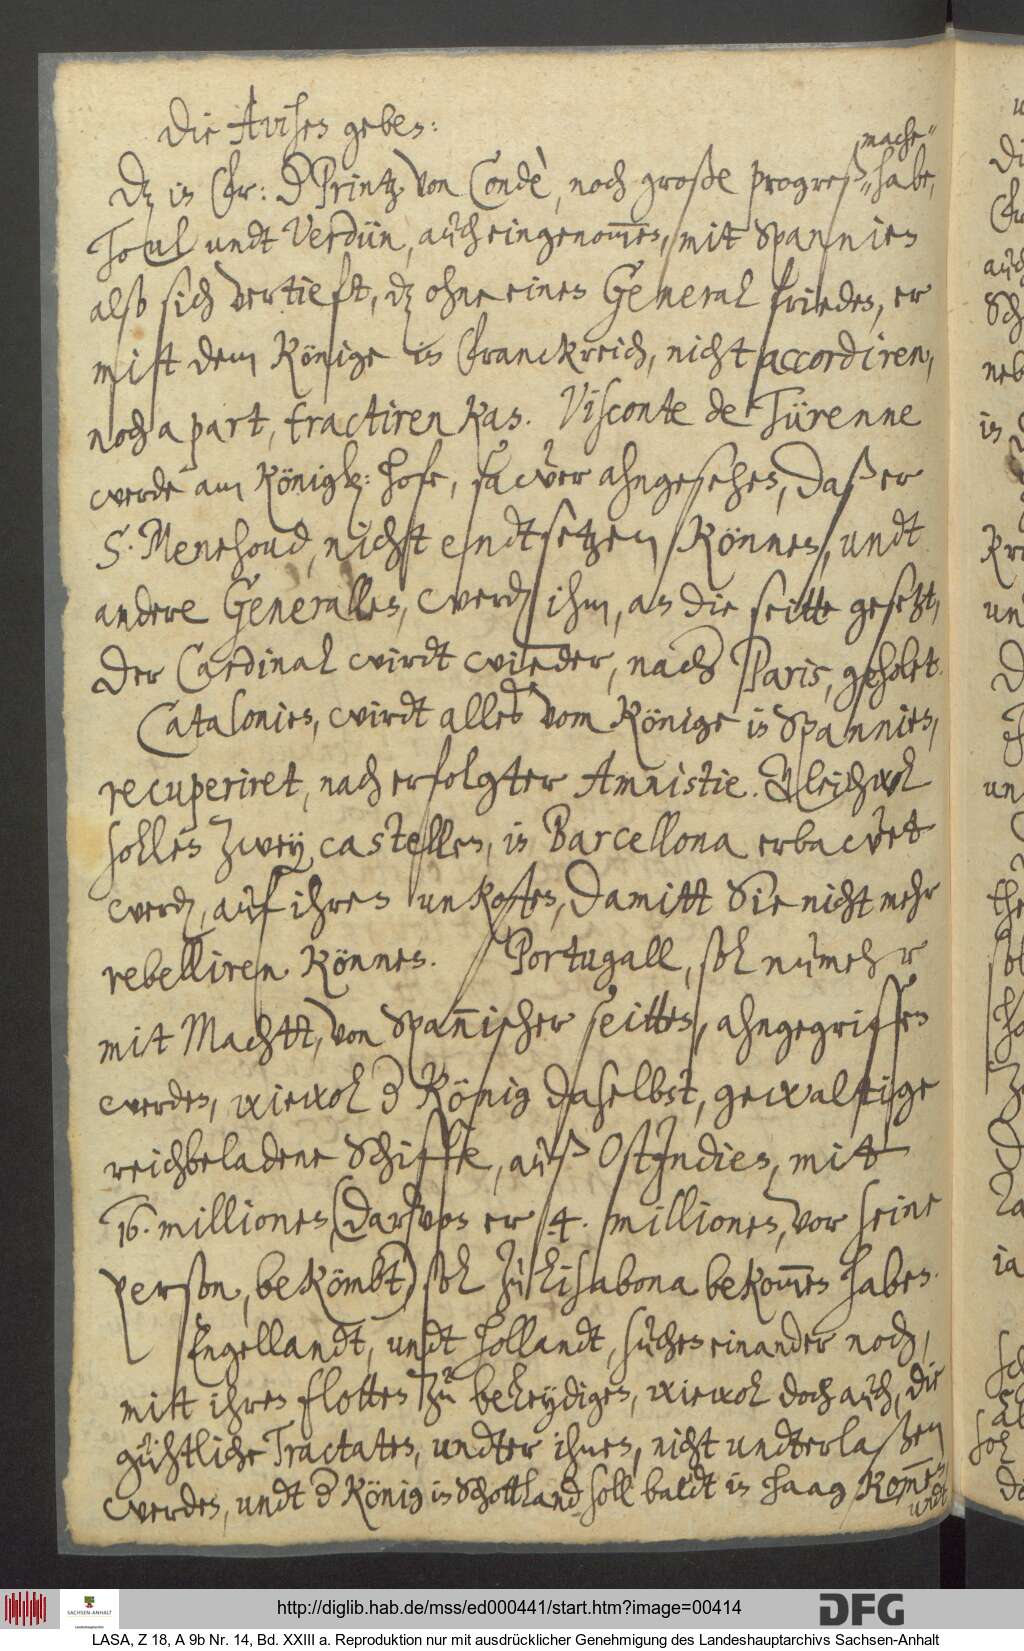 Die Avisen geben:
Dz in Fr: d Printz, von Condè, noch große progreß mache„
„habe,
Toul undt Verdün, auch eingenom̅en, mit Spannien
also sich vertieft, dz ohne einen General frieden, er
mist dem Könige in Franckreich, nicht accordiren,
noch apart, tractiren kan. Visconte de Türenne
werde am Königl: hofe, sawer ahngesehen, daß er
S. Menehoud, nicht endtsetzen können, undt
andere Generallen, werdn ihm, an die seitte gesetzt,
Der Cardinal wirdt wieder, nach Paris, geholet.
Catalonien, wirdt alles vom Könige in Spannien,
recuperiret, nach erfolgter Amnistie. Gleichwol
sollen zwey castellen, in Barcellona erbawet
werdn, auf ihren unkosten, damitt Sie nicht mehr
rebelliren können. Portugall, sol numehr
mit Machtt, von Spann̅ischer seitten, ahngegriffen
werden, wiewol d König daselbst, gewaltige
reichbeladene Schiffe, auß OstIndien, mit
16. millionen, (darvon er 4. millionen, vor seine
person, bekömbt) sol zu Lisabona bekom̅en haben.
Engellandt, undt Hollandt, suchen einander noch,
mitt ihren flotten zu beleydigen, wiewol doch auch, die
güchtliche Tractaten, undter ihnen, nicht undterlaßen
werden, undt d König in Schottland soll baldt in Haag kom̅en
undt
http://diglib.hab.de/mss/ed000441/start.htm?image=00414
SACHSEN-ANHALT
DFG
LASA, Z 18, A 9b Nr. 14, Bd. XXIII a. Reproduktion nur mit ausdrücklicher Genehmigung des Landeshauptarchivs Sachsen-Anhalt